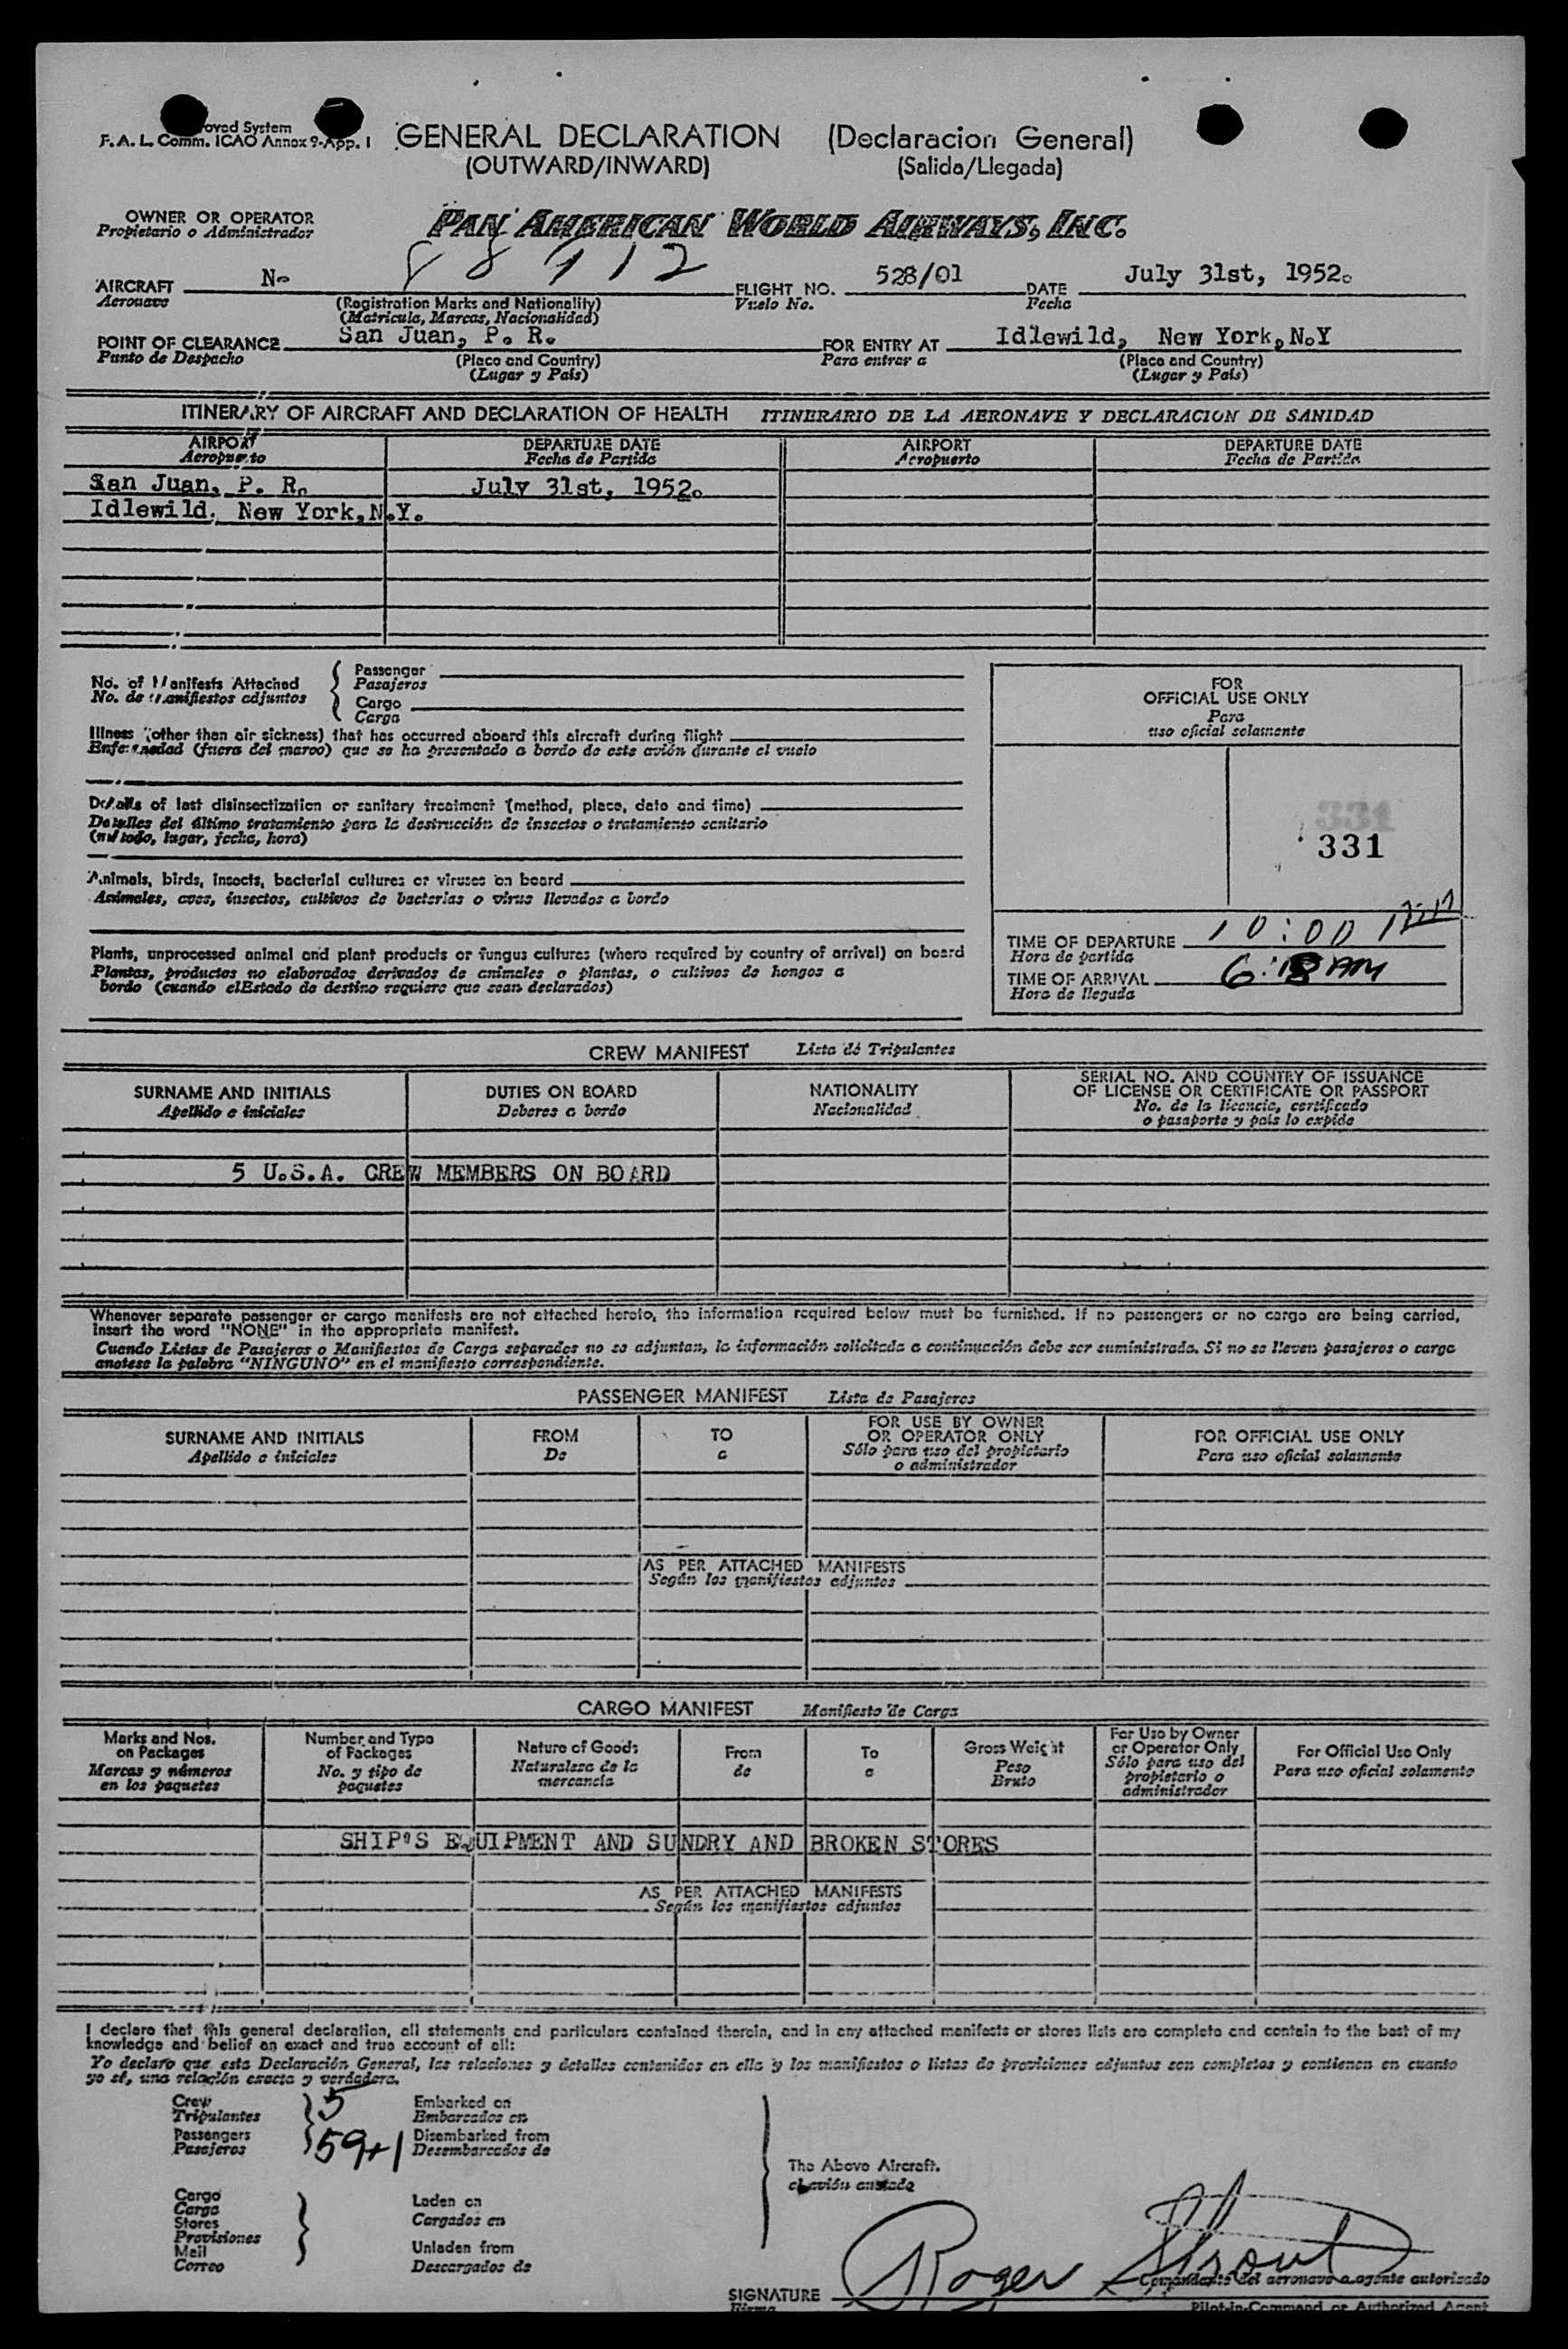 oved System
F. A. L. Comm. ICAO Annex 9-App. 1
GENERAL DECLARATION (Declaracion General)
(OUTWARD/INWARD) (Salida/Llegada)
OWNER OR OPERATOR
Propietario o Administrador
PAN AMERICAN WORLD AIRWAYS, INC.
AIRCRAFT N- 88912 FLIGHT NO. 528/01 DATE July 31st, 1952.
Aeronave (Registration Marks and Nationality) Vuelo No. Fecha
(Matricula, Marcas, Nacionalidad)
POINT OF CLEARANCE San Juan, P. R. FOR ENTRY AT Idlewild, New York,N.Y
Punto de Despacho (Place and Country) Para entrar a (Place and Country)
(Lugar y País) (Lugar y País)
ITINERARY OF AIRCRAFT AND DECLARATION OF HEALTH ITINERARIO DE LA AERONAVE Y DECLARACION DE SANIDAD
AIRPORT DEPARTURE DATE AIRPORT DEPARTURE DATE
Aeropuerto Fecha de Partida Aeropuerto Fecha de Partida
San Juan, P. R. July 31st, 1952.
Idlewild, New York,N.Y.
No. of Manifests Attached
No. de manifiestos adjuntos
Passenger
Pasajeros
Cargo
Carga
Illness (other than air sickness) that has occurred aboard this aircraft during flight
Enfermedad (fuera del mareo) que se ha presentado a bordo de este avión durante el vuelo
Details of last disinsectization or sanitary treatment (method, place, date and time)
Detalles del último tratamiento para la destrucción de insectos o tratamiento sanitario
(método, lugar, fecha, hora)
Animals, birds, insects, bacterial cultures or viruses on board
Animales, aves, insectos, cultivos de bacterias o virus llevados a bordo
Plants, unprocessed animal and plant products or fungus cultures (where required by country of arrival) on board
Plantas, productos no elaborados derivados de animales o plantas, o cultivos de hongos a
bordo (cuando elEstado de destino requiera que sean declarados)
FOR
OFFICIAL USE ONLY
Para
uso oficial solamente
331
331
TIME OF DEPARTURE 10:00 PM
Hora de partida
TIME OF ARRIVAL 6:18 AM
Hora de llegada
CREW MANIFEST Lista de Tripulantes
SURNAME AND INITIALS DUTIES ON BOARD NATIONALITY SERIAL NO. AND COUNTRY OF ISSUANCE
Apellido e iniciales Deberes a bordo Nacionalidad OF LICENSE OR CERTIFICATE OR PASSPORT
No. de la licencia, certificado
o pasaporte y país lo expide
5 U.S.A. CREW MEMBERS ON BOARD
Whenever separate passenger or cargo manifests are not attached hereto, the information required below must be furnished. If no passengers or no cargo are being carried,
insert the word "NONE" in the appropriate manifest.
Cuando Listas de Pasajeros o Manifiestos de Carga separados no se adjuntan, la información solicitada a continuación debe ser suministrada. Si no se lleven pasajeros o carga
anotese la palabra "NINGUNO" en el manifiesto correspondiente.
PASSENGER MANIFEST Lista de Pasajeros
SURNAME AND INITIALS FROM TO FOR USE BY OWNER FOR OFFICIAL USE ONLY
Apellido e iniciales De a OR OPERATOR ONLY Para uso oficial solamente
Sólo para uso del propietario
o administrador
AS PER ATTACHED MANIFESTS
Según los manifiestos adjuntos
CARGO MANIFEST Manifiesto de Carga
Marks and Nos.
on Packages
Marcas y números
en los paquetes
Number and Type
of Packages
No. y tipo de
paquetes
Nature of Goods
Naturaleza de la
mercancia
From
de
To
a
Gross Weight
Peso
Bruto
For Use by Owner
or Operator Only
Sólo para uso del
propietario o
administrador
For Official Use Only
Para uso oficial solamente
SHIP'S EQUIPMENT AND SUNDRY AND BROKEN STORES
AS PER ATTACHED MANIFESTS
Según los manifiestos adjuntos
I declare that this general declaration, all statements and particulars contained therein, and in any attached manifests or stores lists are complete and contain to the best of my
knowledge and belief an exact and true account of all:
Yo declaro que esta Declaración General, las relaciones y detalles contenidos en ella y los manifiestos o listas de provisiones adjuntas son completos y contienen en cuanto
yo sé, una relación exacta y verdadera.
Crew 5 Embarked on
Tripulantes Embarcados en
Passengers 59+1 Disembarked from
Pasajeros Desembarcados de
The Above Aircraft.
el avión
Cargo Laden on
Carga Cargados en
Stores
Provisiones
Mail Unladen from
Correo Descargados de
SIGNATURE Roger Strout
Firma
Comandante del aeronave o agente autorizado
Pilot-in-Command or Authorized Agent